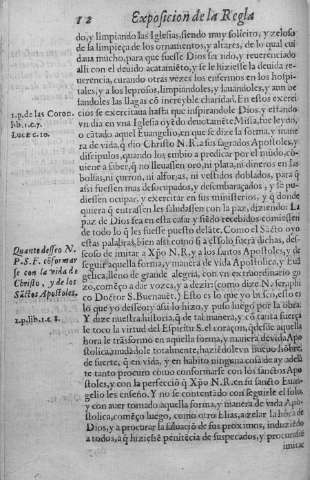 12 Exposicion de la Regla
do, y limpiando las Iglesias, siendo muy solicito, y zeloso
de la limpieça de los ornamentos, y altares, de lo qual cui
daua mucho, para que fuesse Dios seruido, y reuerenciado
alli con el deuido acatamiẽto, y se le hiziesse la deuida re-
uerencia, curando otras vezes los enfermos en los hospi-
tales, y a los leprosos, limpiandoles, y lauandoles, y aun be
sandoles las llagas cõ increyble charidad. En estos exerci
cios se exercitaua hasta que inspirandole Dios, y estando
vn dia en vna Iglesia oyẽdo deuotamẽte Missa, fue leydo,
1.p. de las Coron.
lib.1.c.7.
Lucæ c.10.
o cãtado aquel Euangelio, en que se dize la forma, y mane
ra de vida, q̃ dio Christo N.R. a sus sagrados Apostoles, y
discipulos, quando los embio a predicar por el mũdo, cõ-
uiene a saber, q̃ no lleuassen oro, ni plata, ni dineros en las
bolsas, ni çurron, ni alforjas, ni vestidos doblados, para q̃
assi fuessen mas desocupados, y desembaraçados, y se pu-
diessen ocupar, y exercitar en sus ministerios, y q̃ donde
quiera q̃ entrassen les saludassen con la paz, diziendo: La
paz de Dios sea en esta casa: y siẽdo recebidos comiessen
de todo lo q̃ les fuesse puesto delãte. Como el Sãcto oyó
estas palabras, bien assi como si a el solo fuera dichas, des-
Quanto desseo N.
P.S.F. cõformar
se con la vida de
Christo, y de los
Sãctos Apostoles.
seoso de imitar a Xp̃o N.R. y a los sanctos Apostoles, y de
seguir aquella forma, y manera de vida Apostolica, y Euã
gelica, lleno de grande alegria, con vn extraordinario go
zo, comẽço a dar vozes, y a dezir: (como dize N. seraphi
co Doctor S. Buenauẽt.) Esto es lo que yo busco, esto es
lo que yo desseo: y assi lo hizo, y puso luego por la obra.
2.p.lib.1.c.1.
Y dize nuestra historia, q̃ de tal manera, y cõ tanta fuerça
le toco la virtud del Espiritu S. el coraçon, q̃ desde aquella
hora le trãsformo en aquella forma, y manera de vida Apo
stolica, mudãdole totalmente, haziẽdole vn nueuo hõbre,
de suerte, q̃ en vida, y en habito ninguna cosa de ay adelã
te tanto procuro como conformarse con los sanctos Apo
stoles, y con la perfecciõ q̃ Xp̃o N.R. en su sancto Euan-
gelio les enseño. Y no se contentado con seguirle el solo,
y con auer tomado aquella forma, y manera de vida Apo
stolica, comẽço luego, como otro Elias, a zelar la hõra de
Dios, y a procurar la saluaciõ de sus proximos, induziẽdo
a todos, a q̃ hiziessẽ penitẽcia de sus pecados, y procurassẽ
imitar